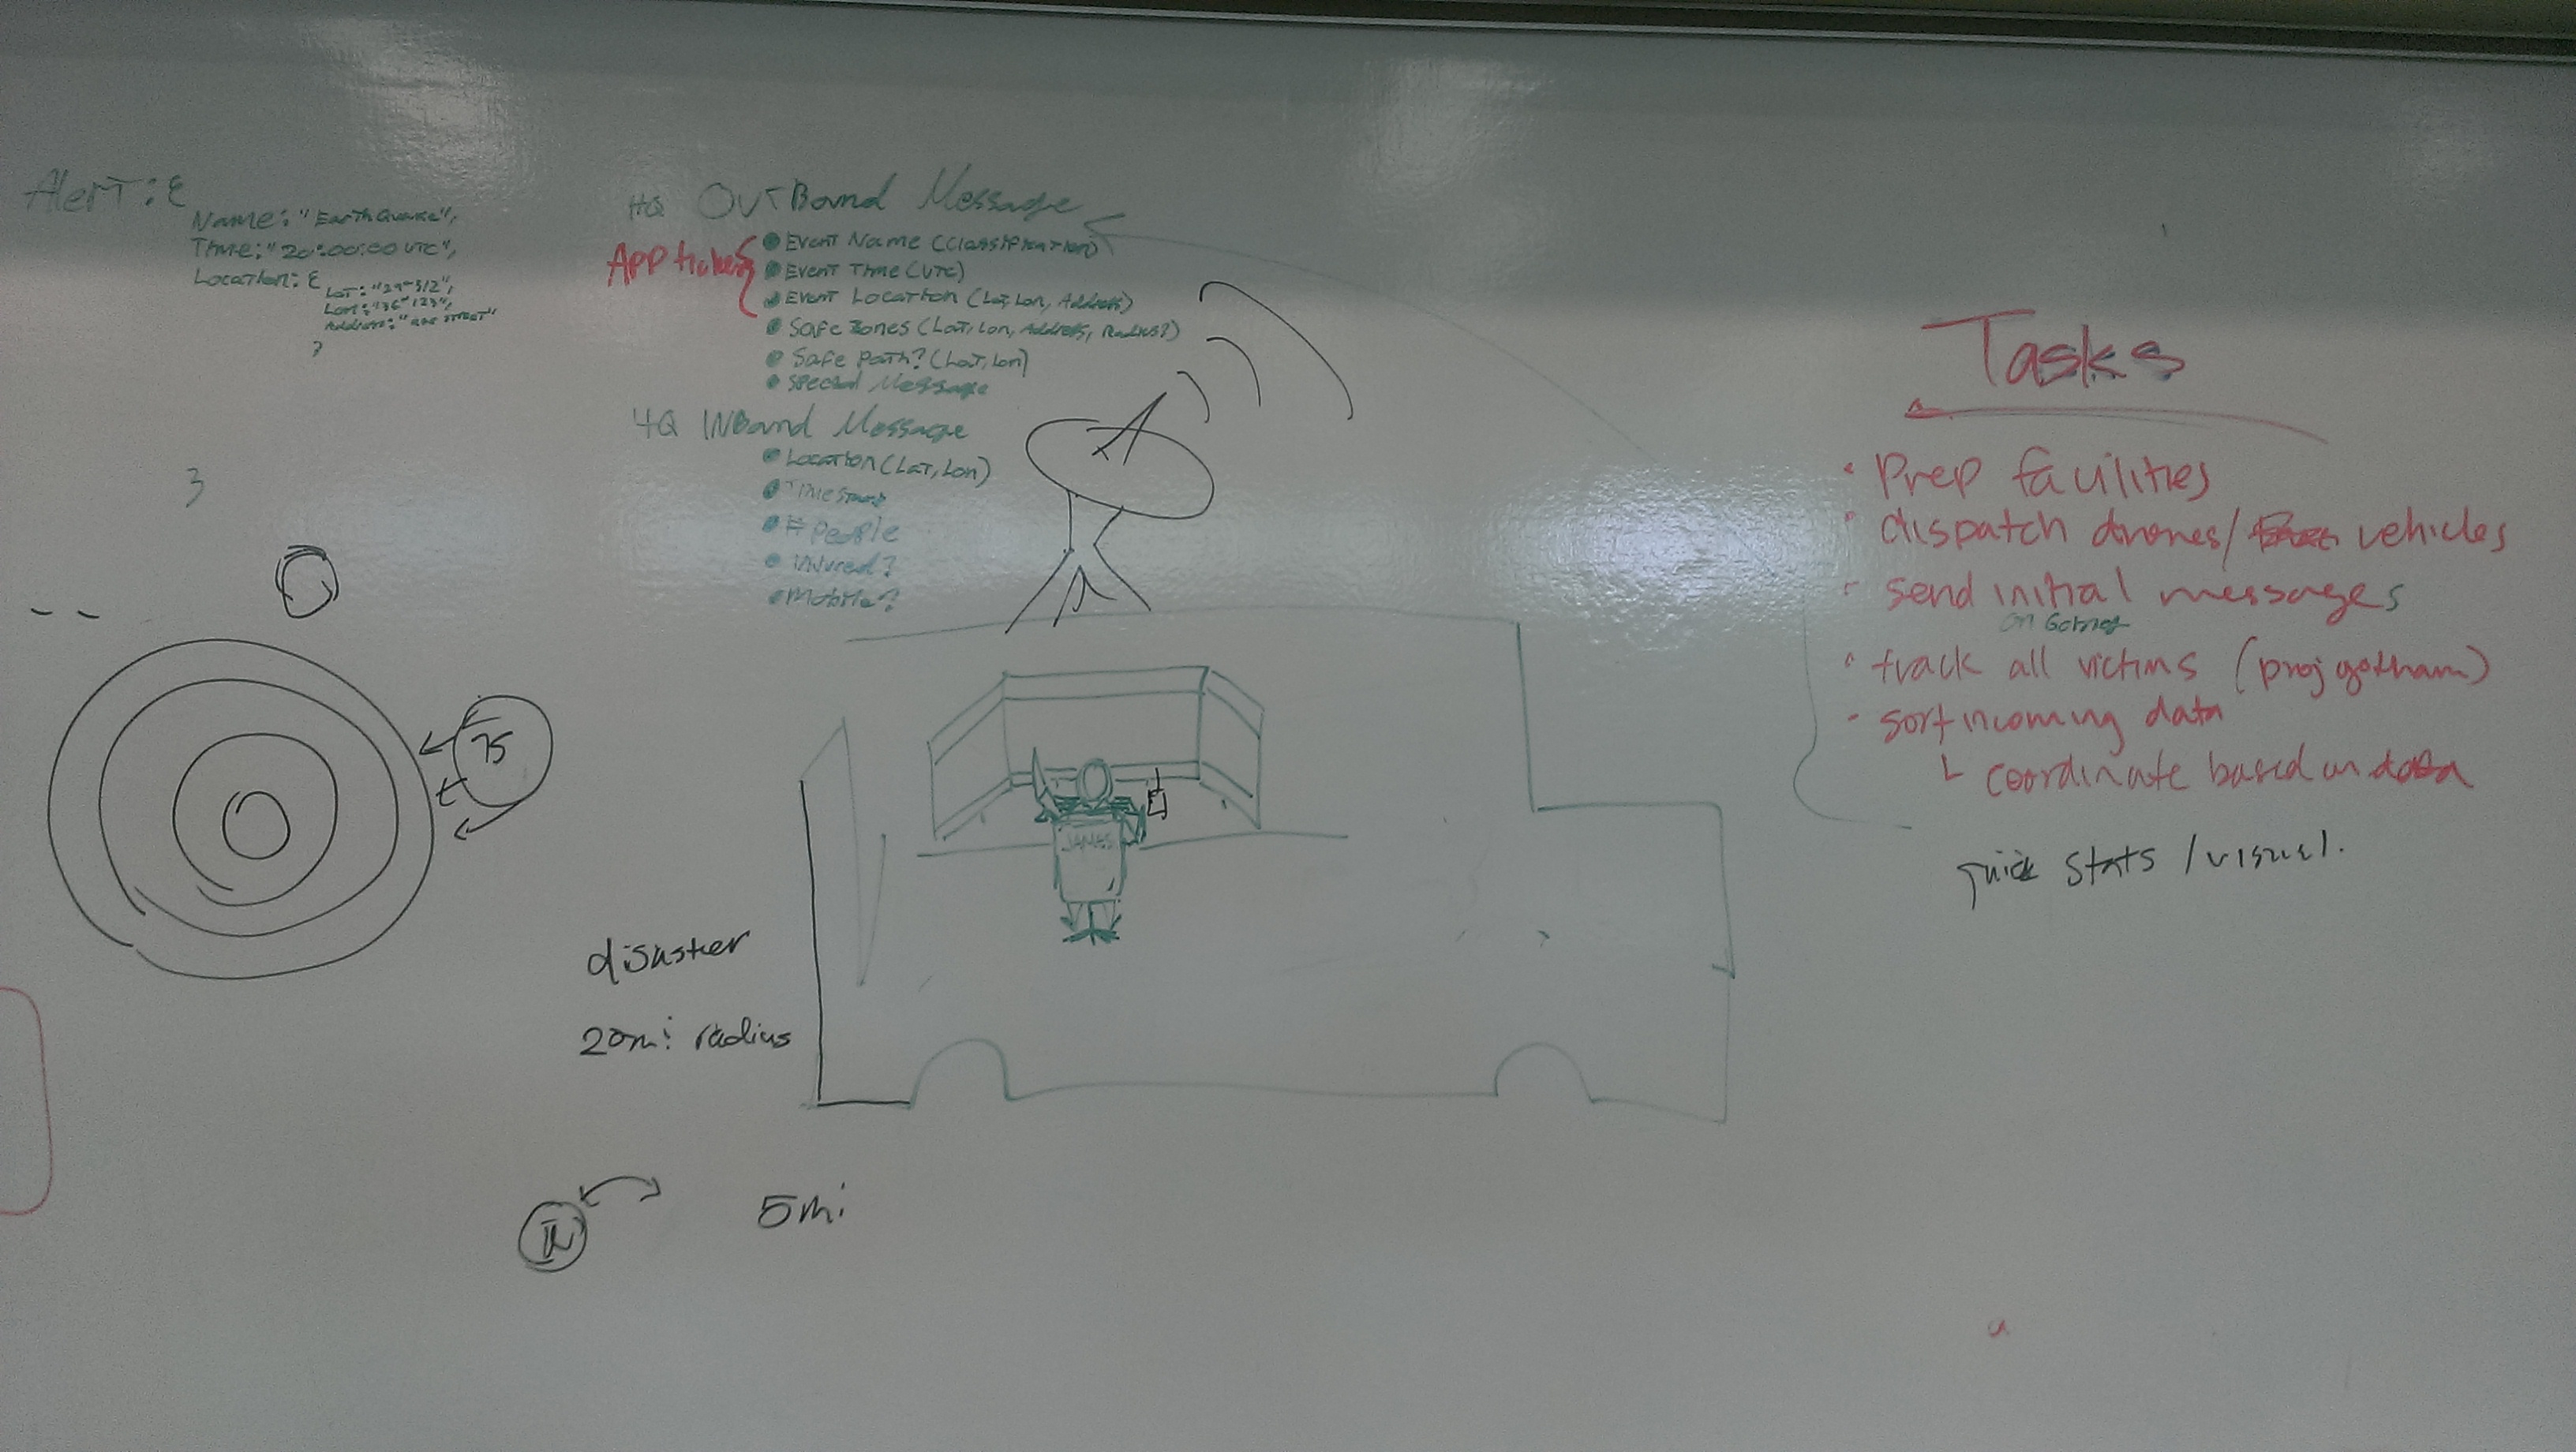 Alert: {
Name: "EarthQuake",
Time: "20:00:00 UTC",
Location: {
Lat: "29-312",
Lon: "36-123",
Address: "ABC STREET"
}
}
HQ OutBound Message
App ticker
• Event Name (Classification)
• Event Time (UTC)
• Event Location (Lat, Lon, Address)
• Safe Zones (Lat, Lon, Address, Radius?)
• Safe Path? (Lat, Lon)
• Special Message
HQ INBound Message
• Location (Lat, Lon)
• Timestamp
• # People
• Injured?
• Mobile?
75
JAMES
disaster
20mi radius
5mi
Tasks
• Prep facilities
• dispatch drones/ vehicles
- send initial messages
on Going
• track all victims (proj gotham)
- sort incoming data
└ coordinate based on data
quick stats / visual.